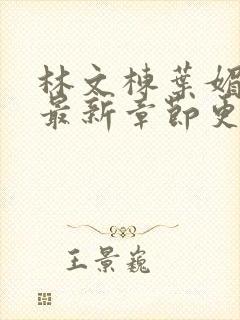 林文棟葉媚
最新章節更
王景巍